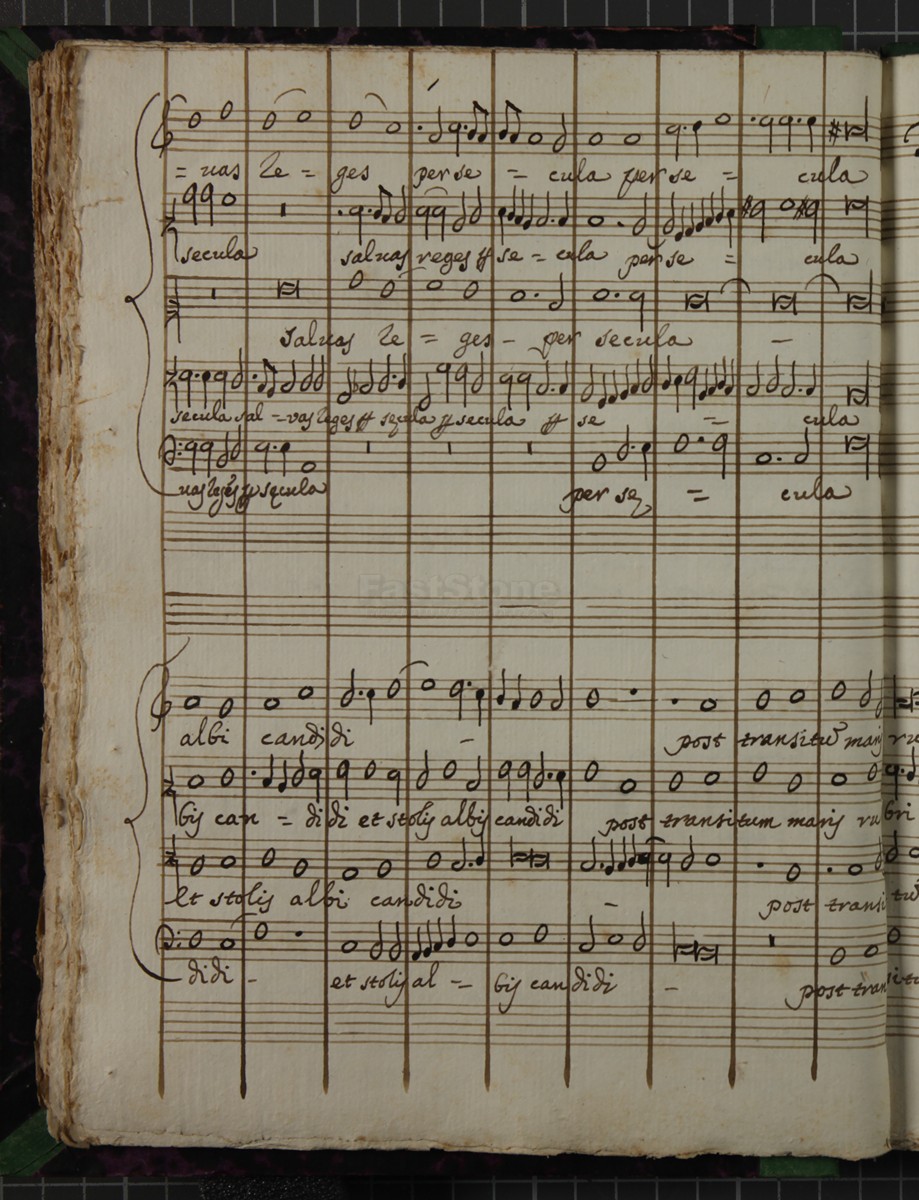 = uas Re = ges per se = cula per se = cula
secula saluas reges se = cula per se = cula
saluas Re = ges - per secula -
secula sal = vas leges secula secula se = cula
uas leges secula per se = cula
FastStone
albi candidi - post transitū maris ru
bis can = didi et stolis albis candidi post transitum maris ru bri
Et stolis albi candidi - post transi tū
didi - et stolis al - bis candidi - post tran situ